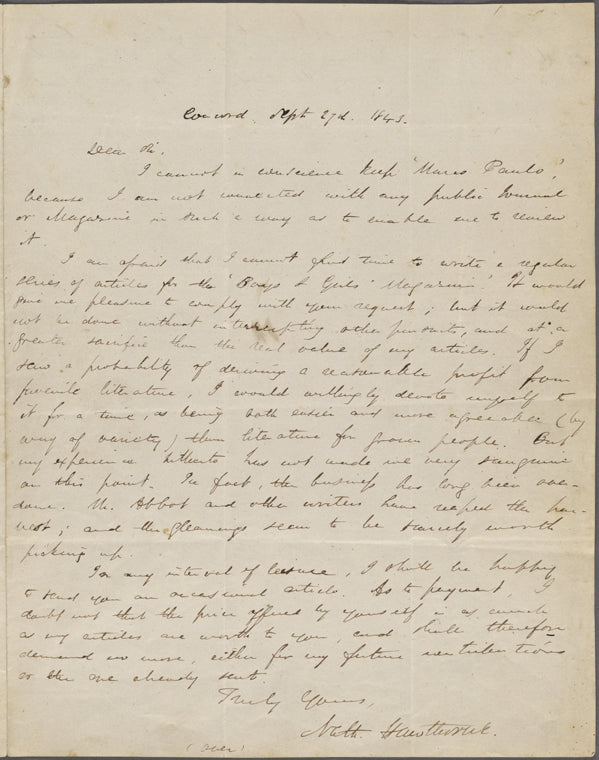 Concord, Sept 27th. 1843.
Dear Sir,
I cannot in conscience keep 'Marco Paulo,'
because I am not connected with any public Journal
or Magazine in such a way as to enable me to review
it.
I am afraid that I cannot find time to write a regular
series of articles for the 'Boys & Girls' Magazine.' It would
give me pleasure to comply with your request; but it would
not be done without interrupting other pursuits, and at a
greater sacrifice than the real value of my articles. If I
saw a probability of deriving a reasonable profit from
juvenile literature, I would willingly devote myself to
it for a time, as being both easier and more agreeable (by
way of variety) than literature for grown people. But
my experience hitherto has not made me very sanguine
on this point. In fact, the business has long been over-
done. Mr. Abbot and other writers have reaped the har-
vest; and the gleanings seem to be scarcely worth
picking up.
In any interval of leisure, I shall be happy
to send you an occasional article. As to payment, I
doubt not that the price offered by yourself is as much
as my articles are worth to you, and shall therefore
demand no more, either for my future contributions
or the one already sent.
Truly Yours,
Nath. Hawthorne.
(over)